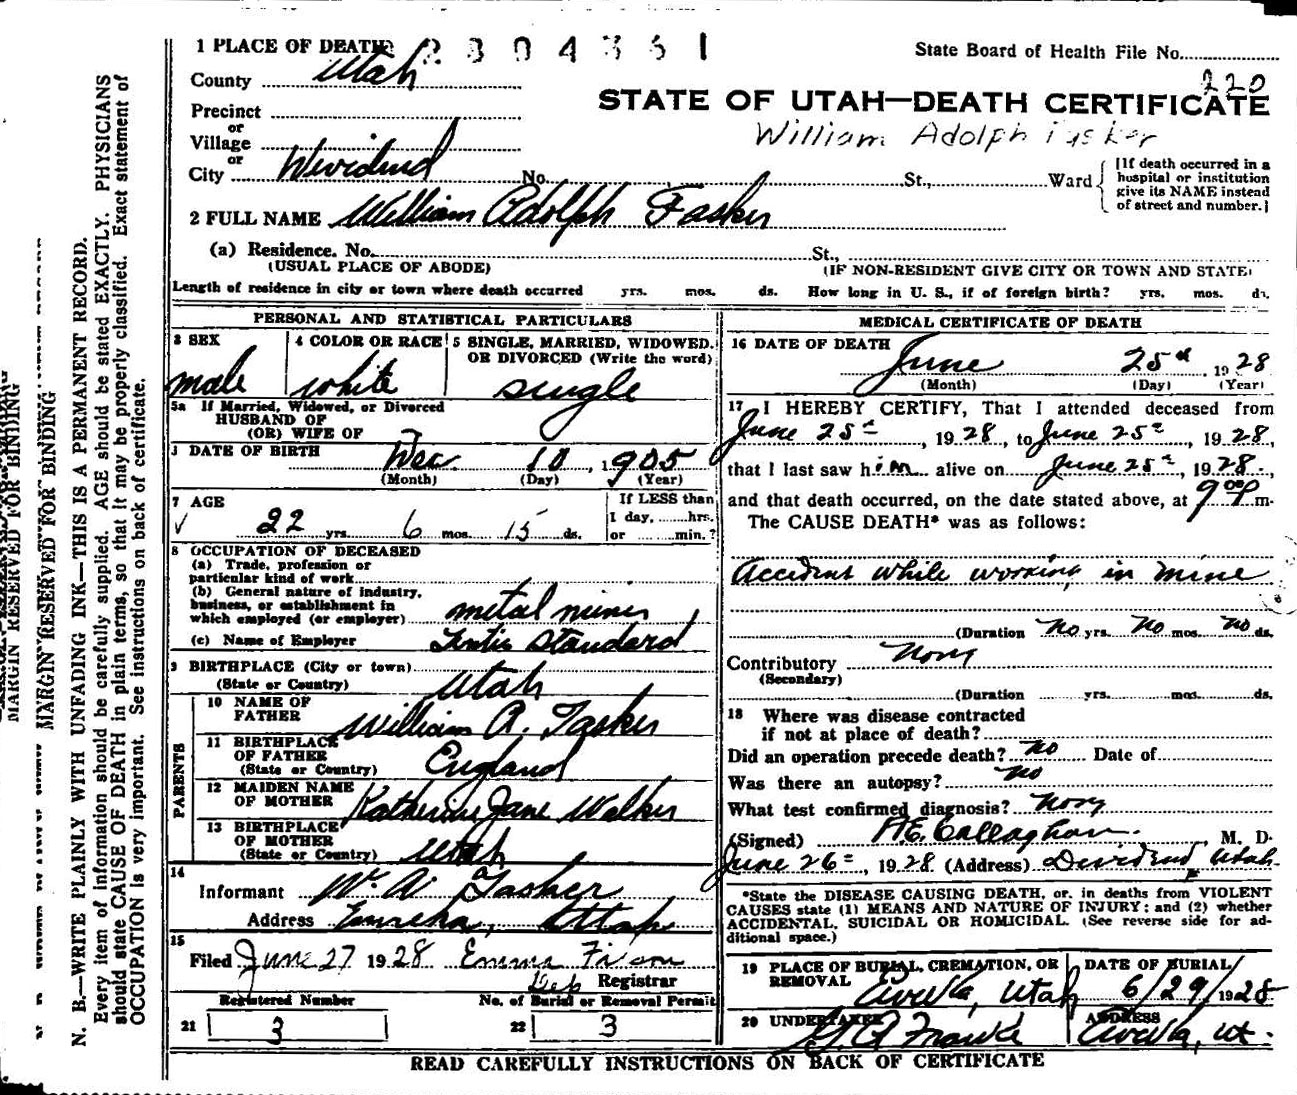 1 PLACE OF DEATH 2304361
State Board of Health File No.
County Utah
220
STATE OF UTAH—DEATH CERTIFICATE
Precinct
or
Village
William Adolph Tasker
or
City Dividend No. St., Ward
[If death occurred in a hospital or institution give its NAME instead of street and number.]
2 FULL NAME William Adolph Tasker
(a) Residence. No. St.,
(USUAL PLACE OF ABODE) (IF NON-RESIDENT GIVE CITY OR TOWN AND STATE)
Length of residence in city or town where death occurred yrs. mos. ds. How long in U. S., if of foreign birth? yrs. mos. ds.
PERSONAL AND STATISTICAL PARTICULARS
3 SEX
male
4 COLOR OR RACE
white
5 SINGLE, MARRIED, WIDOWED, OR DIVORCED (Write the word)
single
5a If Married, Widowed, or Divorced
HUSBAND OF
(OR) WIFE OF
DATE OF BIRTH Dec 10, 1905
(Month) (Day) (Year)
7 AGE
22 yrs. 6 mos. 15 ds.
If LESS than
1 day, hrs.
or min.?
8 OCCUPATION OF DECEASED
(a) Trade, profession or
particular kind of work
(b) General nature of industry,
business, or establishment in
which employed (or employer) metal miner
(c) Name of Employer Tintic Standard
9 BIRTHPLACE (City or town)
(State or Country) Utah
PARENTS
10 NAME OF
FATHER William A. Tasker
11 BIRTHPLACE
OF FATHER
(State or Country) England
12 MAIDEN NAME
OF MOTHER Katherine Jane Walker
13 BIRTHPLACE
OF MOTHER
(State or Country) Utah
14
Informant W. A. Tasker
Address Eureka, Utah
15
Filed June 27 1928 Emma
Dep Registrar
Registered Number No. of Burial or Removal Permit
21 3 22 3
MEDICAL CERTIFICATE OF DEATH
16 DATE OF DEATH
June 25 1928
(Month) (Day) (Year)
17 I HEREBY CERTIFY, That I attended deceased from
June 25, 1928, to June 25, 1928,
that I last saw him alive on June 25, 1928,
and that death occurred, on the date stated above, at 9 00 p m.
The CAUSE DEATH* was as follows:
Accident while working in mine
(Duration No yrs. No mos. No ds.
Contributory None
(Secondary)
(Duration yrs. mos. ds.
18 Where was disease contracted
if not at place of death?
Did an operation precede death? No Date of
Was there an autopsy? No
What test confirmed diagnosis? None
(Signed) H.E. Callaghan, M. D.
June 26, 1928 (Address) Dividend, Utah.
*State the DISEASE CAUSING DEATH, or, in deaths from VIOLENT
CAUSES state (1) MEANS AND NATURE OF INJURY; and (2) whether
ACCIDENTAL, SUICIDAL OR HOMICIDAL. (See reverse side for ad-
ditional space.)
19 PLACE OF BURIAL, CREMATION, OR
REMOVAL Eureka, Utah
DATE OF BURIAL
6/29/1928
20 UNDERTAKER
Franke
ADDRESS
Eureka, Ut.
READ CAREFULLY INSTRUCTIONS ON BACK OF CERTIFICATE
MARGIN RESERVED FOR BINDING
MARGIN RESERVED FOR BINDING
N. B.—WRITE PLAINLY WITH UNFADING INK—THIS IS A PERMANENT RECORD.
Every item of information should be carefully supplied. AGE should be stated EXACTLY. PHYSICIANS
should state CAUSE OF DEATH in plain terms, so that it may be properly classified. Exact statement of
OCCUPATION is very important. See instructions on back of certificate.